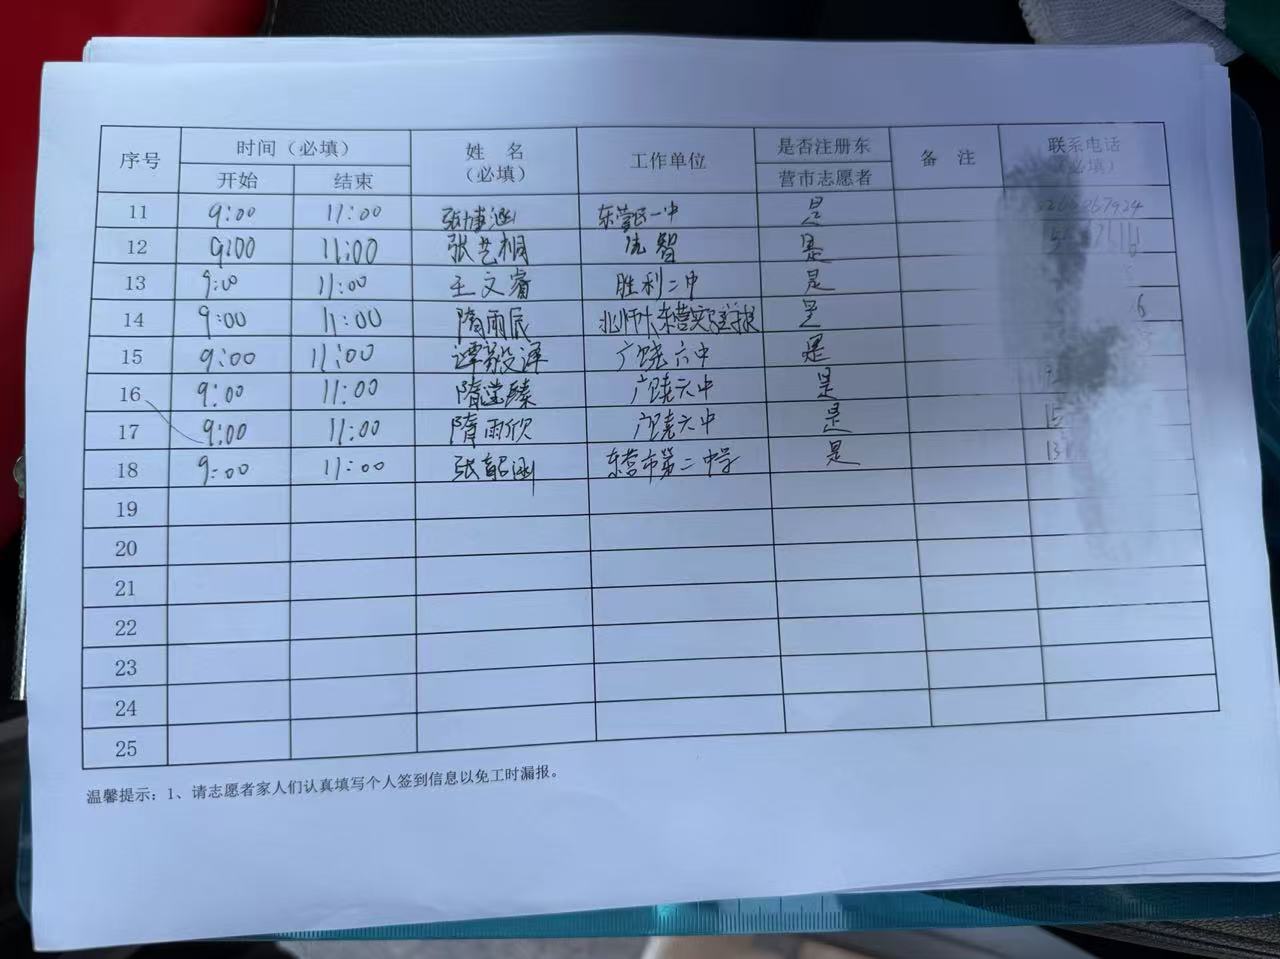 序号 时间（必填） 姓 名（必填） 工作单位 是否注册东营市志愿者 备 注 联系电话（必填）
开始 结束
11 9:00 11:00 张博涵 东营区一中 是
12 9:00 11:00 张艺桐 是
13 9:00 11:00 王文睿 胜利二中 是
14 9:00 11:00 隋雨辰 北师大东营实验学校 是
15 9:00 11:00 广饶六中 是
16 9:00 11:00 广饶六中 是
17 9:00 11:00 隋雨欣 广饶六中 是
18 9:00 11:00 张韶涵 东营市第二中学 是
19
20
21
22
23
24
25
温馨提示：1、请志愿者家人们认真填写个人签到信息以免工时漏报。